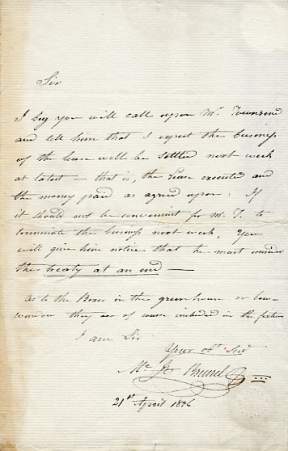 Sir
I beg you will call upon Mr. Townsend
and tell him that I expect the business
of the lease will be settled next week
at latest — that is, the lease executed and
the money paid as agreed upon. If
it should not be convenient for Mr. T. to
terminate the business next week, You
will give him notice that he must consider
the treaty at an end —
As to the in the green house or
they are of course included in the
I am Sir
Your Obt. Servt.
Brunel
21st April 18